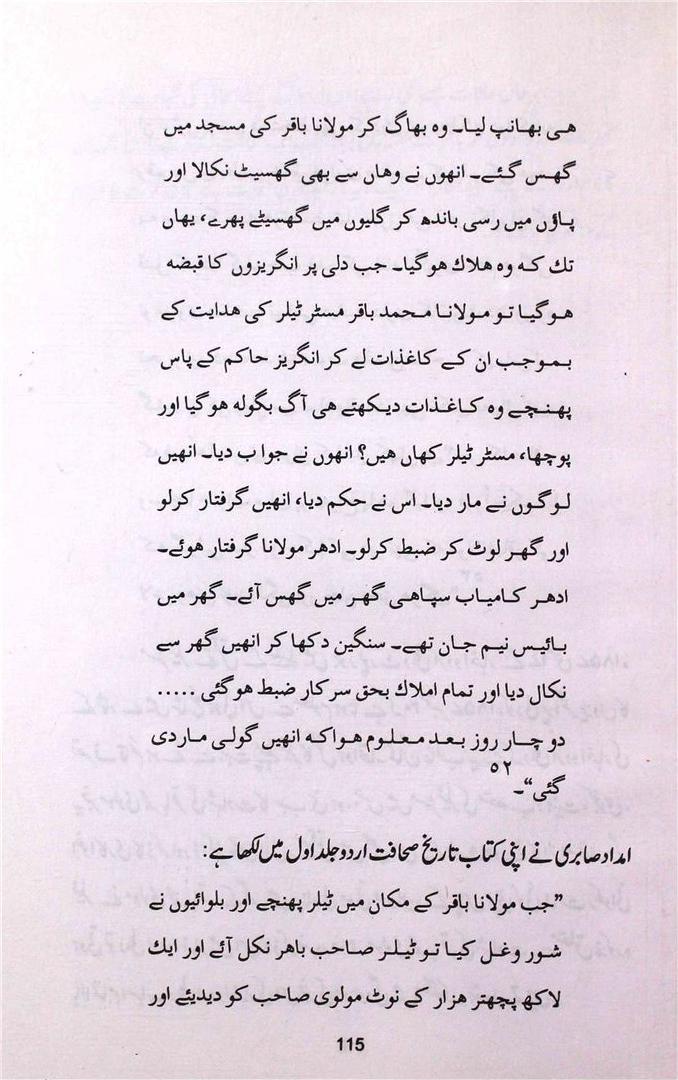 هی بھانپ لیا۔ وہ بھاگ کر مولانا باقر کی مسجد میں
گھس گئے۔ انھوں نے وھاں سے بھی گھسیٹ نکالا اور
پاؤں میں رسی باندھ کر گلیوں میں گھسیٹے پھرے، یھاں
تك کہ وہ ھلاك ھوگیا۔ جب دلی پر انگریزوں کا قبضہ
ھوگیا تو مولانا محمد باقر مسٹر ٹیلر کی ھدایت کے
بموجب ان کے کاغذات لے کر انگریز حاکم کے پاس
پھنچے وہ کاغذات دیکھتے ھی آگ بگولہ ھوگیا اور
پوچھا، مسٹر ٹیلر کھاں ھیں؟ انھوں نے جواب دیا۔ انھیں
لوگوں نے مار دیا۔ اس نے حکم دیا، انھیں گرفتار کرلو
اور گھر لوٹ کر ضبط کرلو۔ ادھر مولانا گرفتار ھوئے۔
ادھر کامیاب سپاھی گھر میں گھس آئے۔ گھر میں
بائیس نیم جان تھے۔ سنگین دکھا کر انھیں گھر سے
نکال دیا اور تمام املاك بحق سرکار ضبط ھوگئی .....
دو چار روز بعد معلوم ھوا کہ انھیں گولی ماردی
گئی“۔ ۵۲
امداد صابری نے اپنی کتاب تاریخ صحافت اردو جلد اول میں لکھا ہے:
”جب مولانا باقر کے مکان میں ٹیلر پھنچے اور بلوائیوں نے
شور وغل کیا تو ٹیلر صاحب باھر نکل آئے اور ایك
لاکھ پچھتر ھزار کے نوٹ مولوی صاحب کو دیدیئے اور
115